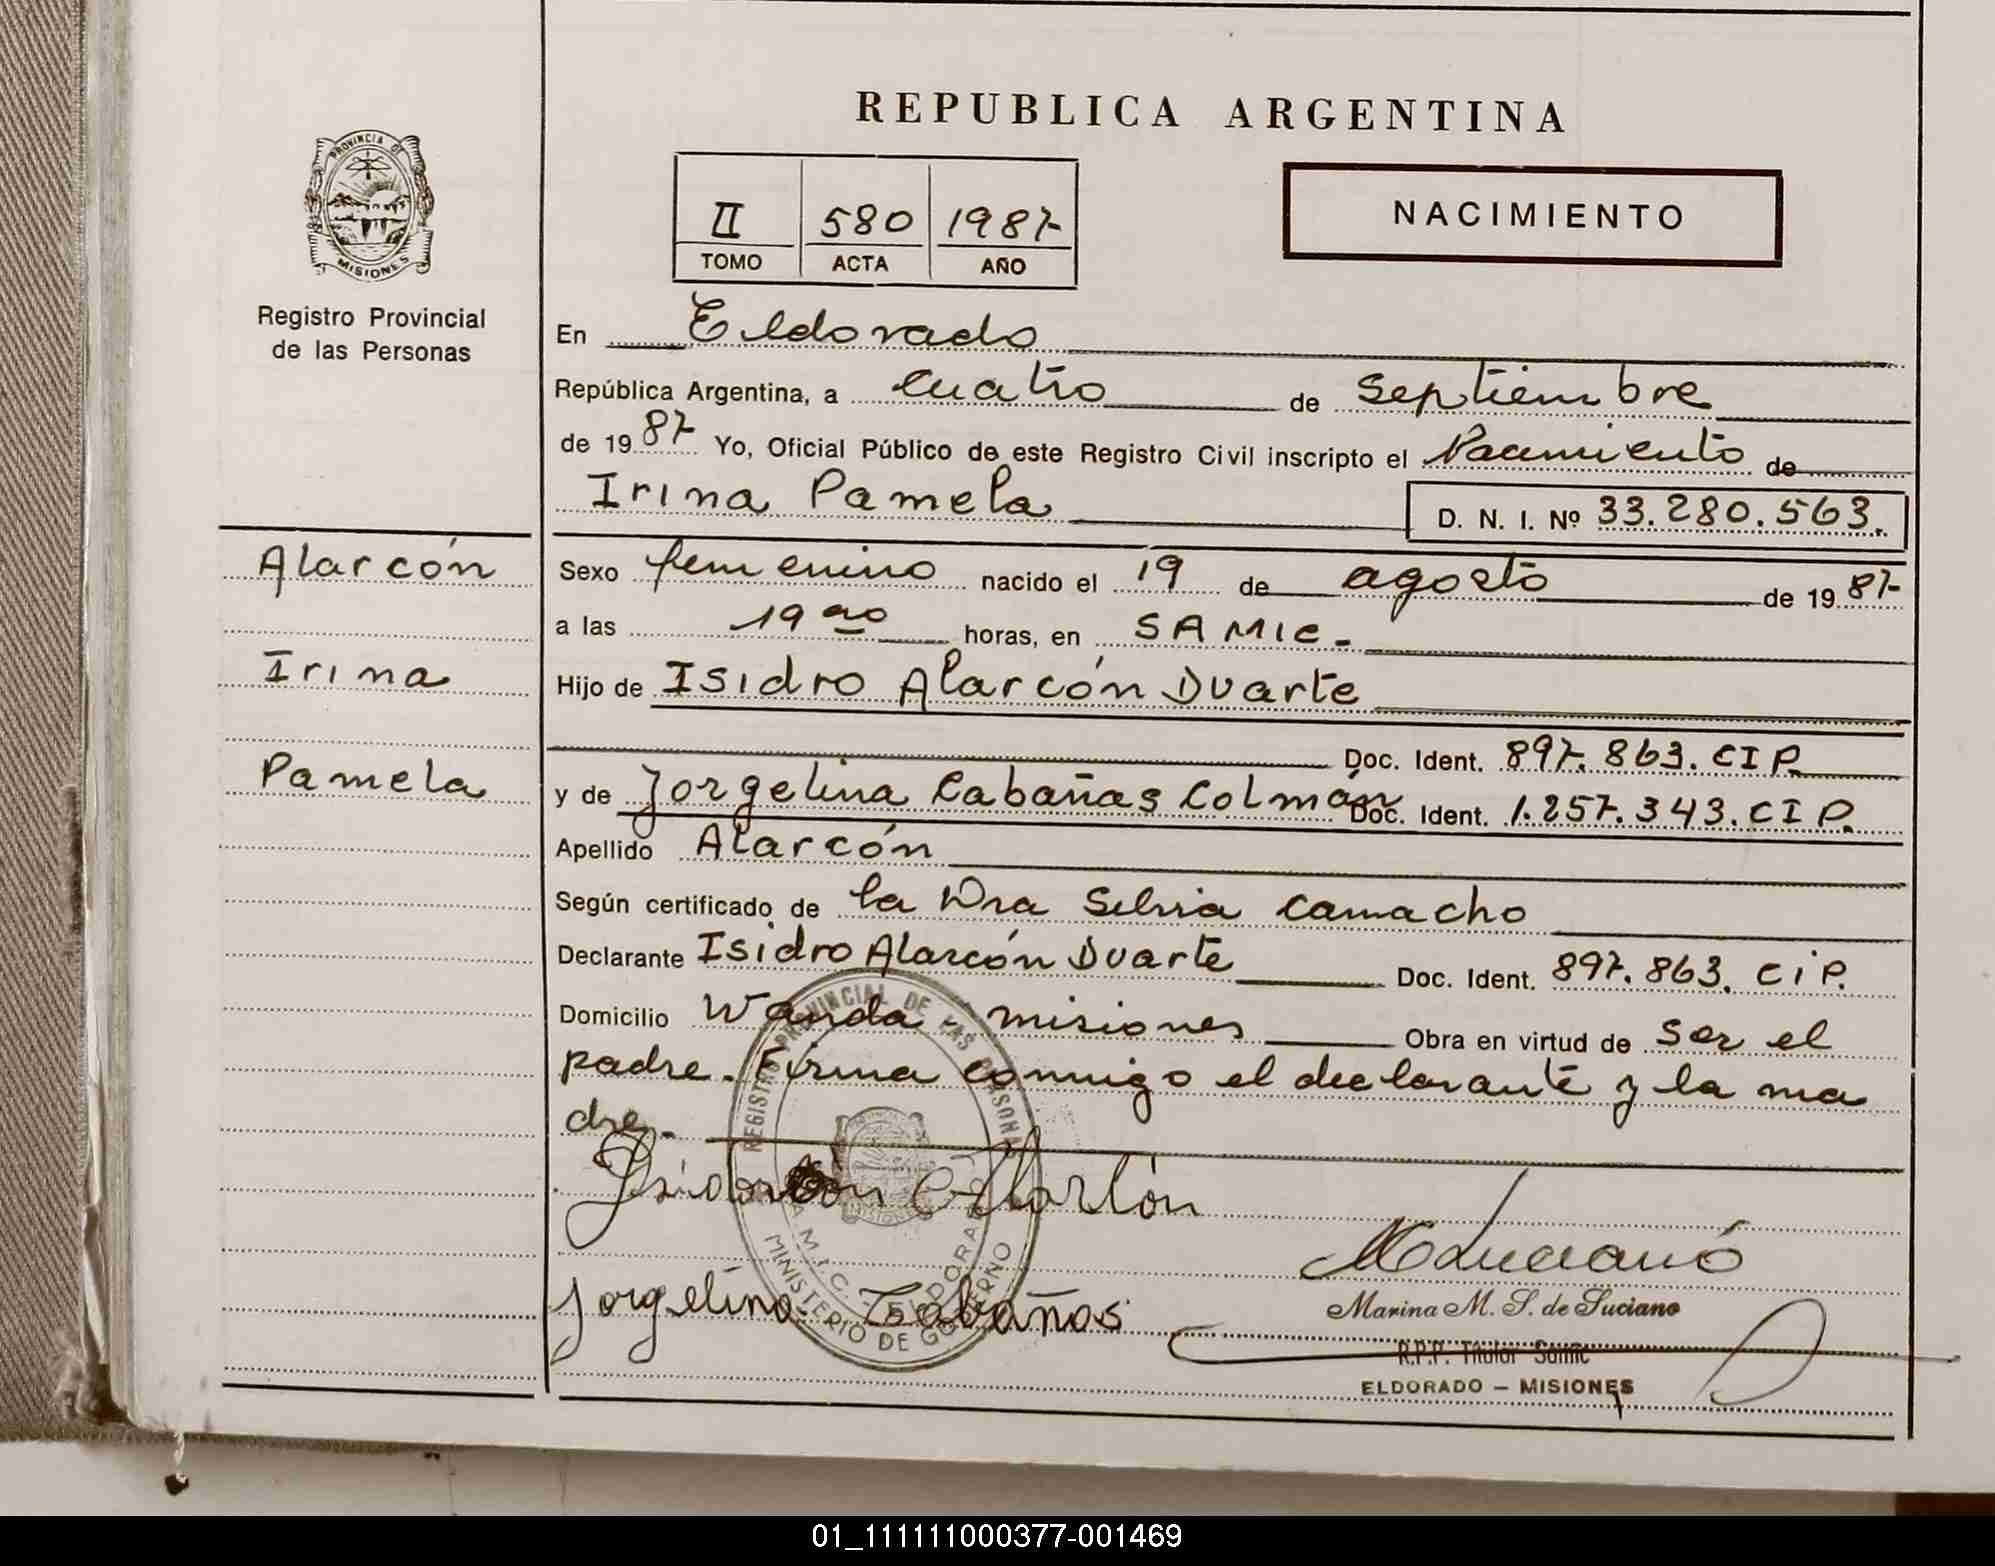 PROVINCIA DE
MISIONES
Registro Provincial
de las Personas
Alarcón
Irina
Pamela
REPUBLICA ARGENTINA
II 580 1987
TOMO ACTA AÑO
NACIMIENTO
En Eldorado
República Argentina, a cuatro de septiembre
de 1987 Yo, Oficial Público de este Registro Civil inscripto el Nacimiento de
Irina Pamela
D. N. I. Nº 33.280.563.
Sexo femenino nacido el 19 de agosto de 1987
a las 19 horas, en SAMIC.
Hijo de Isidro Alarcón Duarte
Doc. Ident. 897.863. CIP.
y de Jorgelina Cabañas Colmán Doc. Ident. 1.257.343. CIP.
Apellido Alarcón
Según certificado de la Dra Silvia Camacho
Declarante Isidro Alarcón Duarte Doc. Ident. 897.863. CiP.
Domicilio Wanda - misiones Obra en virtud de ser el
padre. Firma conmigo el declarante y la ma
dre.
REGISTRO PROVINCIAL DE LAS PERSONAS
S.A.M.I.C. - ELDORADO
MINISTERIO DE GOBIERNO
Alarcón
Jorgelina Cabañas
Marina M. S. de Luciano
R.P.P. Titular Samic
ELDORADO – MISIONES
01_111111000377-001469